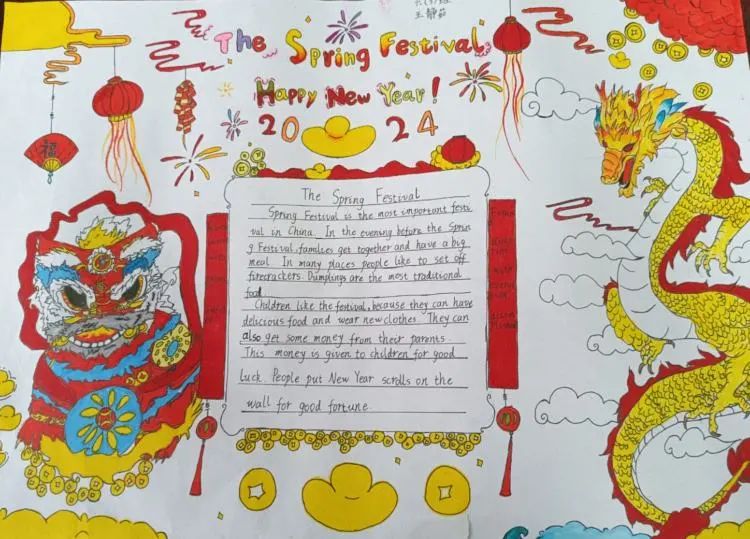 王静茹
The Spring Festival
Happy New Year!
2024
福
The Spring Festival
Spring Festival is the most important festi
val in China. In the evening before the Sprin
g Festival families get together and have a big
meal. In many places people like to set off
firecrackers. Dumplings are the most traditional
food
Children like the festival, because they can have
delicious food and wear new clothes. They can
also get some money from their parents.
This money is given to children for good
luck. People put New Year scrolls on the
wall for good fortune.